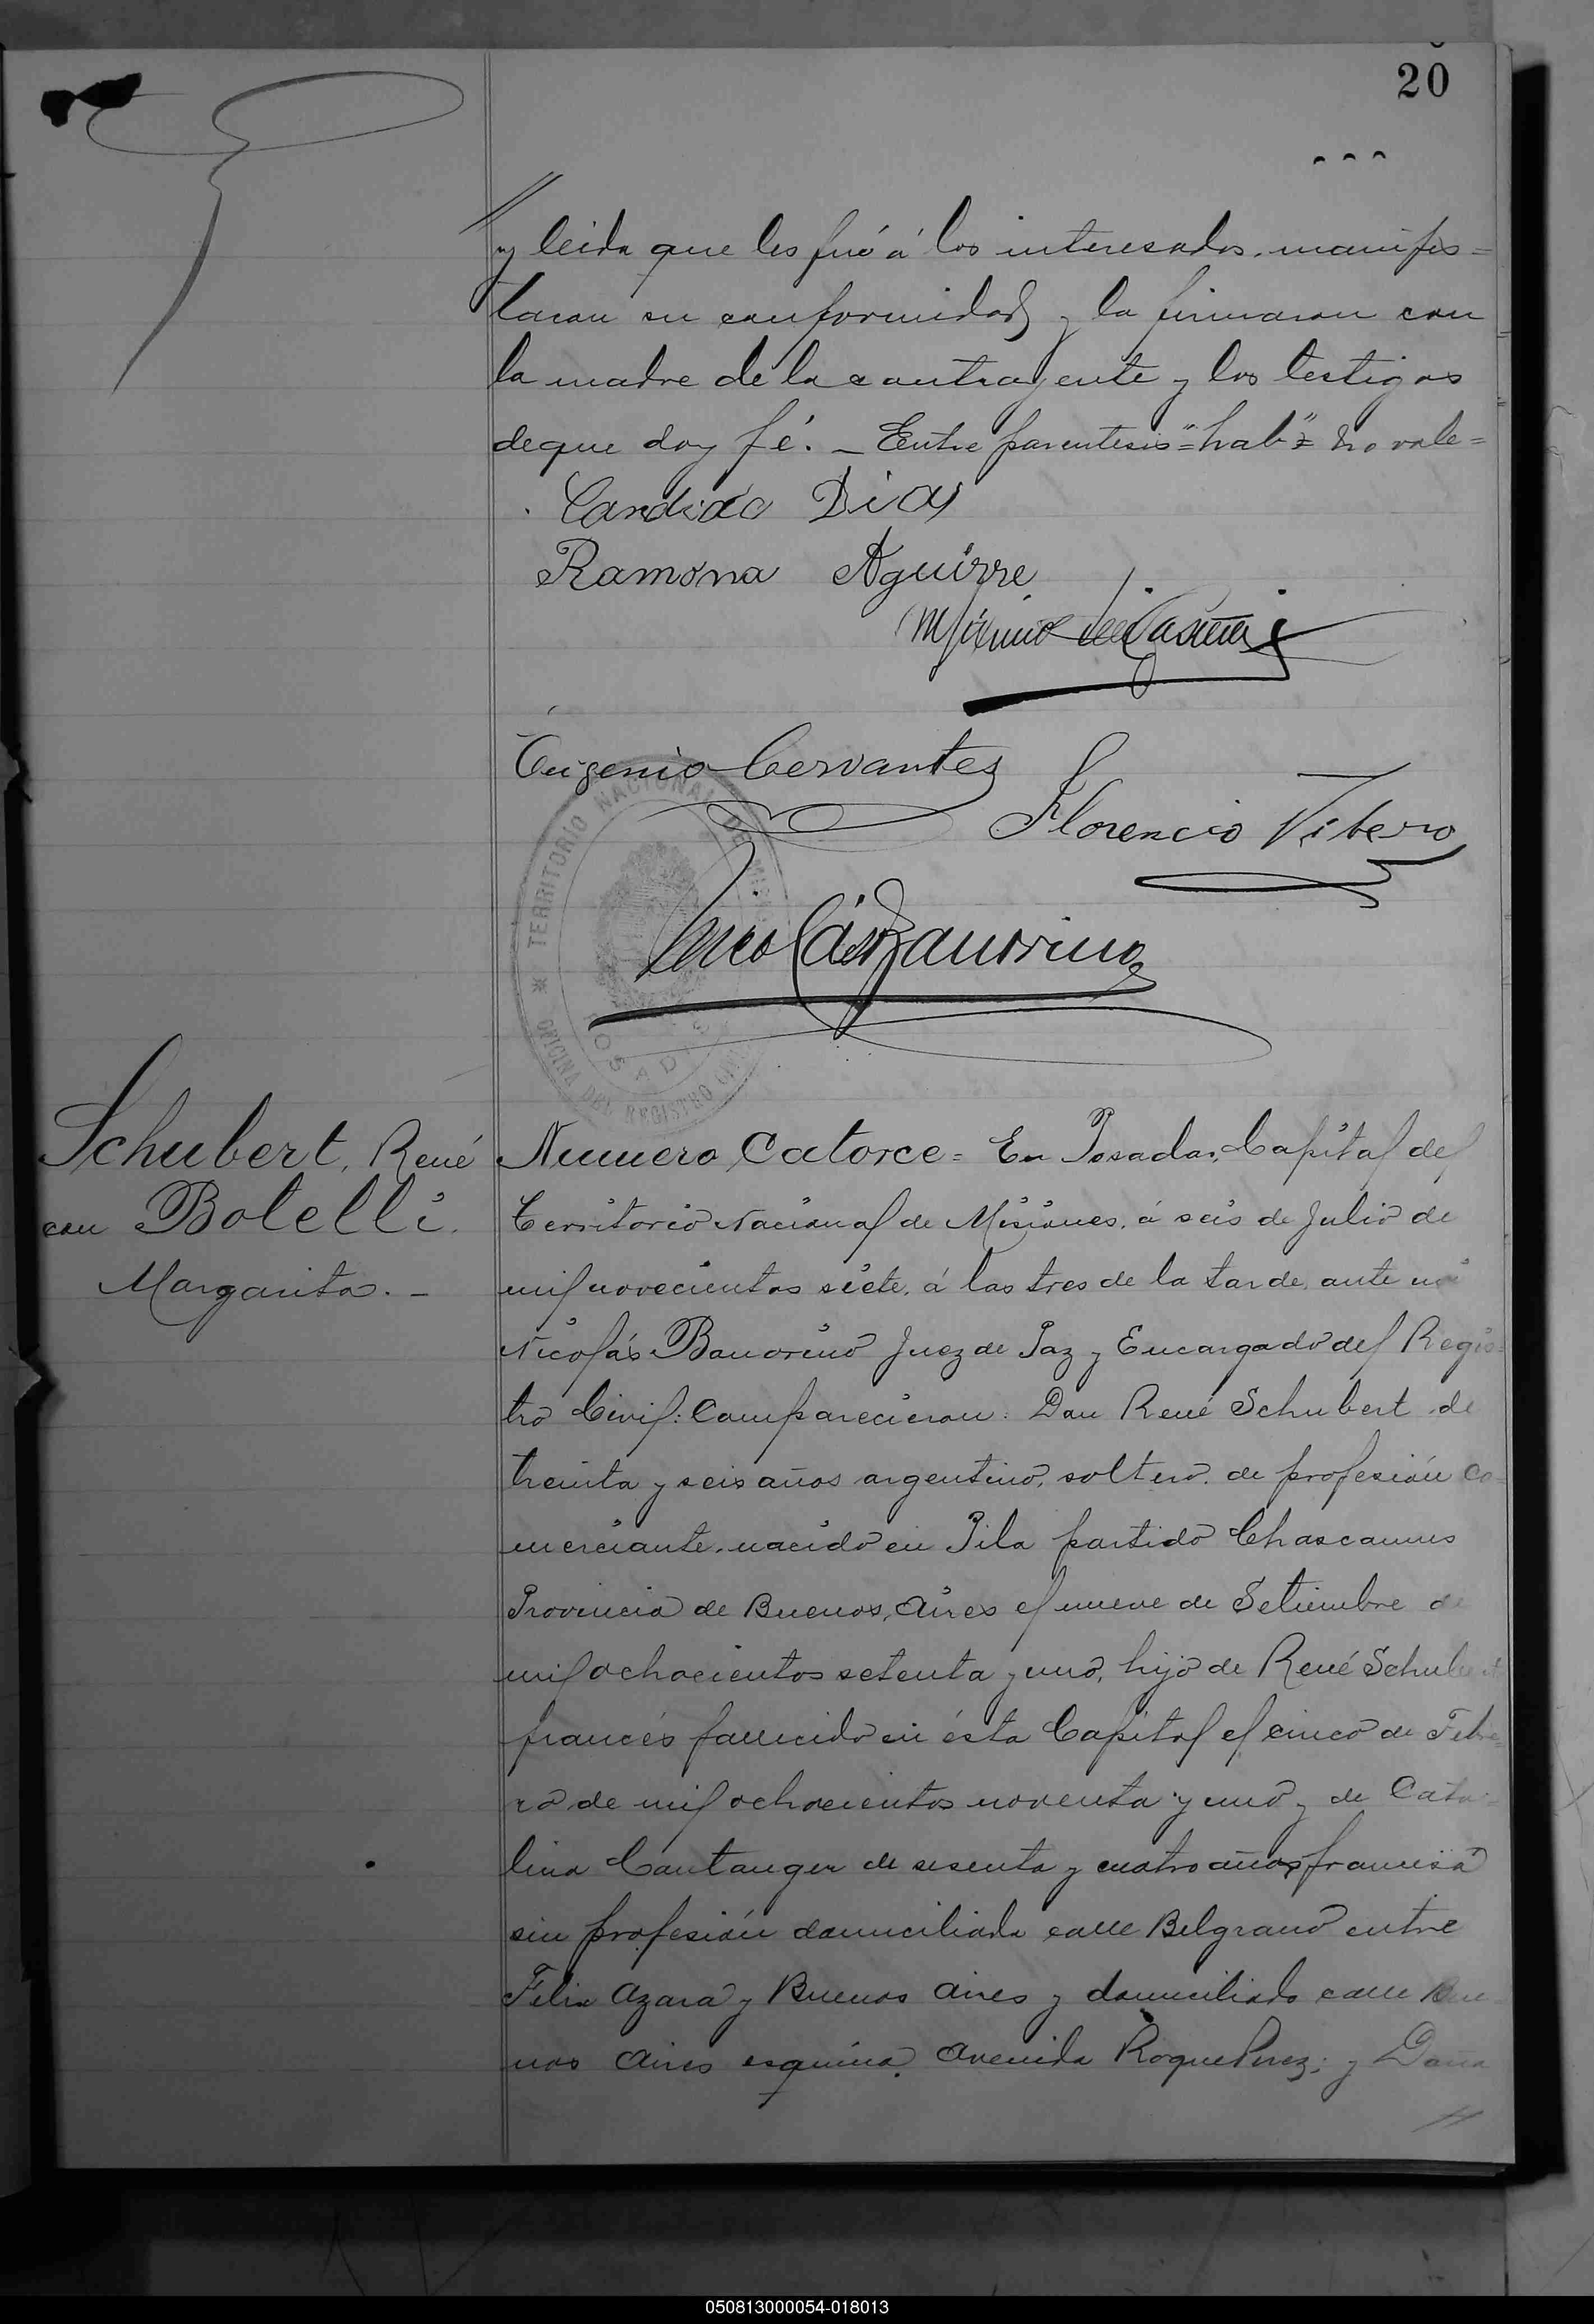 20
y leida que les fué á los interesados, manifes=
taron su conformidad y la firmaron con
la madre de la contrayente y los testigos
de que doy fé. _ Entre parentesis "=hab"= no vale=
Candido Dias
Ramona Aguirre
Eugenio Cervantes
Florencio Vibero
Nicolás Bauorino
TERRITORIO NACIONAL DE MISIONES
OFICINA DEL REGISTRO CIVIL
POSADAS
Schubert, René
con Botelli.
Margarita. _
Numero Catorce = En Posadas, Capital del
Territorio Nacional de Misiones, á seis de Julio de
mil novecientos siete, á las tres de la tarde, ante mi
Nicolás Bauorino Juez de Paz y Encargado del Regis=
tro Civil: Comparecieron: Don René Schubert de
treinta y seis años argentino, soltero, de profesión co-
merciante, nacido en Pila partido Chascomus
Provincia de Buenos Aires el nueve de Setiembre de
mil ochocientos setenta y uno, hijo de René Schubert
francés fallecido en ésta Capital el cinco de Febre=
ro de mil ochocientos noventa y uno y de Cata-
lina Cantanger de sesenta y cuatro años, francesa
sin profesión domiciliada calle Belgrano entre
Felix Azara y Buenos Aires y domiciliado calle Bue-
nos Aires esquina Avenida Roque Perez; y Doña
050813000054-018013